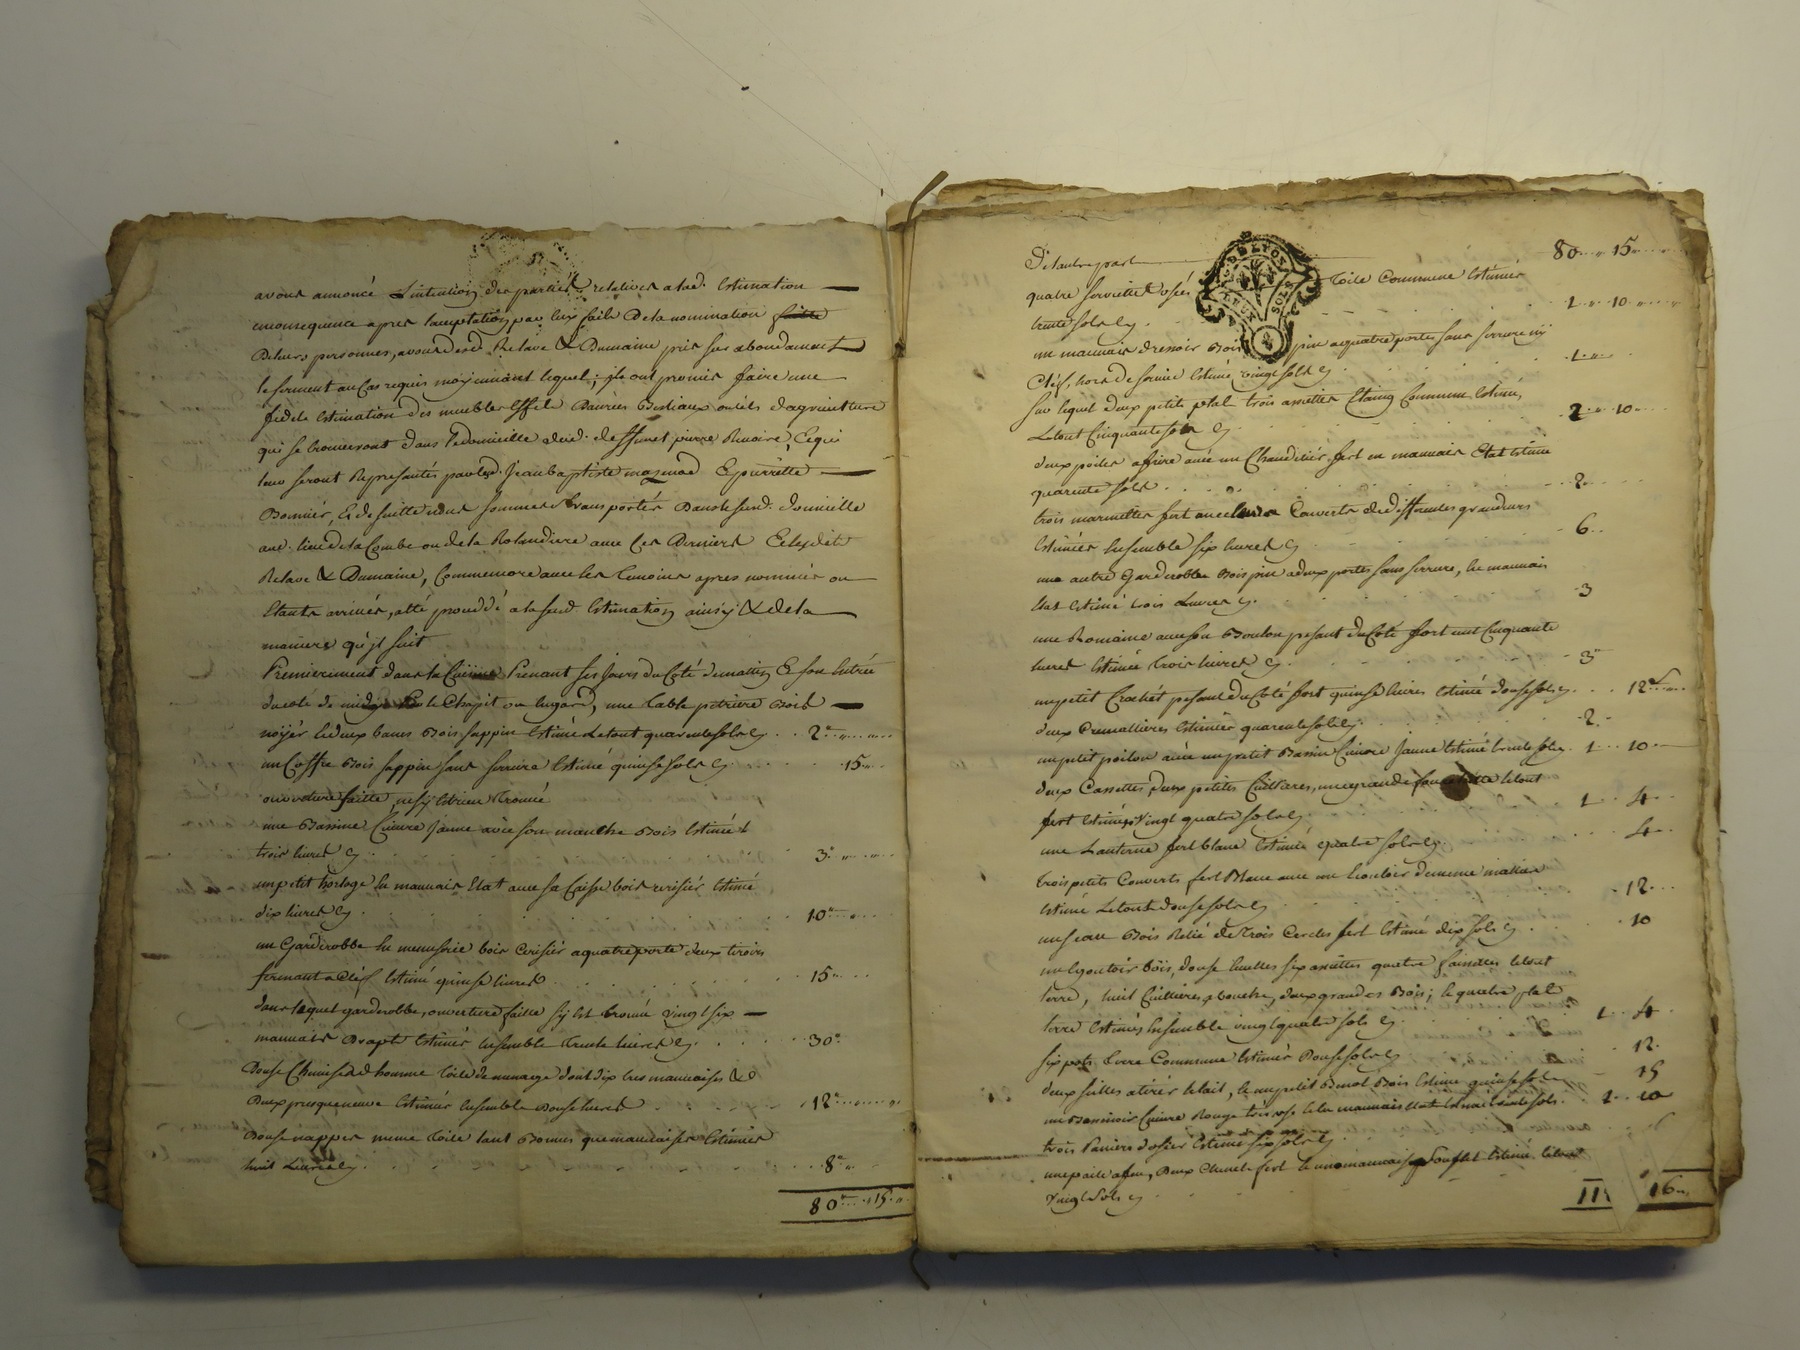 avons annoncé L'intention des parties relatives a lad. Estimation
enconsequence apres lacceptation par eux faite De la nomination faitte
Delurs personnes, avons desd. Relave & Dumaine pris sur abondamment
le serment au Cas requis moyennant lequel, ils ont promis faire une
fidele Estimation des meubles Effets Danrées Bestiaux outils d'agriculture
qui se trouveront dans ledomicille dud. deffunt pierre Revoire, Et qui
leur seront Representés par led. Jean baptiste Et pierrette
Bonnier, Et de suitte nous sommes transportés Dans le susd. domicille
aud. lieu de la Combe ou de la Rolandiere avec Ces Derniers Et lesdits
Relave & Dumaine, Comme encore avec les temoins apres nommés ou
Etants arrivés, a été procédé a la susd. Estimation ainsy & de la
maniere qu'il suit
Premierement dans la Cuisine Prenant ses Jours du Coté de mattin Et son Entrée
du coté de midy Et le Chapit ou hugard, une table petrière Bois
noÿér Et deux bancs Bois sappin Estimé Le tout quarente sols Cy .. 2
un Coffre Bois sappin sans serrure Estimé quinse sols Cy ..... 15
ouverture faitte, ne s'y Est rien trouvé
une Bassine Cuivre Jaune avéc son manche Bois Estimée
trois livres Cy ..... 3
un petit horloge En mauvais Etat avec sa Caisse bois cerisiér Estimé
dix livres Cy ..... 10
un Garderobbe En menuserie bois Cerisiér a quatre porte deux tiroirs
fermant a Cléf Estimé quinse livres ..... 15
dans lequel garderobbe, ouverture faitte s'y Est trouvé vingt six
mauvais Draps Estimés Ensemble trente livres Cy ..... 30
Douse Chemises d'homme toile de menage dont dix tres mauvaises &
Deux presque neuve Estimés Ensemble Douse livres ..... 12
Douse nappes meme toile tant Bonnes que mauvaises Estimées
huit Livres Cy ..... 8
80 .. 15
D'El autre part ..... 80 .. 15
quatre serviettes usées toile Commune Estimés
trente sols Cy ..... 1 .. 10
un mauvais dressoir Bois pin a quatre portes sans serrure ny
Cléf, hors de service Estimé vingt sols Cy ..... 1
sur lequel deux petits plat trois assiettes Etaing Commun Estimés,
Le tout Cinquante sols Cy ..... 2 .. 10
deux poiles a frire avéc un Chaudiér fert en mauvais Etat Estimé
quarente sols ..... 2
trois marmittes fert avec leurs Couverts de differentes grandeurs
Estimées Ensemble six livres Cy ..... 6
une autre Garderobbe Bois pin a deux portes sans serrure, En mauvais
Etat Estimé trois Livres Cy ..... 3
une Romaine avec son Boulon pesant du Coté fort cent Cinquante
livres Estimée trois livres Cy ..... 3
un petit Crochét pesant du Coté fort quinse livres Estimé douse sols Cy ... 12
deux Cremallieres Estimées quarente sols Cy ..... 2
un petit poilon avéc un petit Bassin Cuivre Jaune Estimé trente sols Cy. 1 .. 10
deux Cassettes, deux petites Cuillieres, une grande le tout
fert Estimés Vingt quatre sols Cy ..... 1 .. 4
une Lanterne fert blanc Estimée quatre sols Cy ..... 4
Trois petits Couverts fert Blanc avec un de meme matiere
Estimé Le tout douse sols Cy ..... 12
un seau Bois Relié de trois Cercles fert Estimé dix sols Cy ..... 10
un Egoutoir bois, douse six assiettes quatre le tout
terre, huit Cuillieres a bouche, deux grandes Bois; Et quatre plat
terre Estimés Ensemble vingt quatre sols Cy ..... 1 .. 4
six pots terre Commune Estimés Douse sols Cy ..... 12
deux seilles a tirér le lait, Et un petit Benot Bois Estimé quinse sols ..... 15
un Bassinoir Cuivre Rouge très usé Et En mauvais Etat sols ..... 1 .. 10
trois Paniers d'osier Estimés six sols Cy ..... 6
une paile a feu, Deux Chenet fert Et un mauvais souflet Estimé le tout
Vingt sols Cy .....
111 16